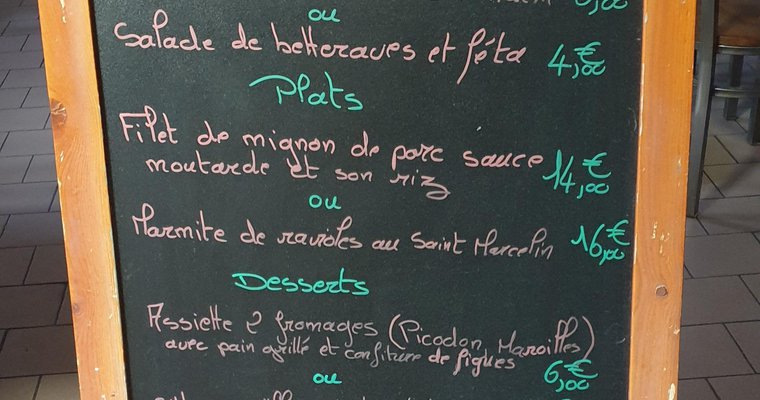 ou
Salade de betteraves et féta 4,00€
Plats
Filet de mignon de porc sauce
moutarde et son riz 14,00€
ou
Marmite de ravioles au Saint Marcelin 16,00€
Desserts
Assiette 2 fromages (Picodon, Maroilles)
avec pain grillé et confiture de figues 6,00€
ou